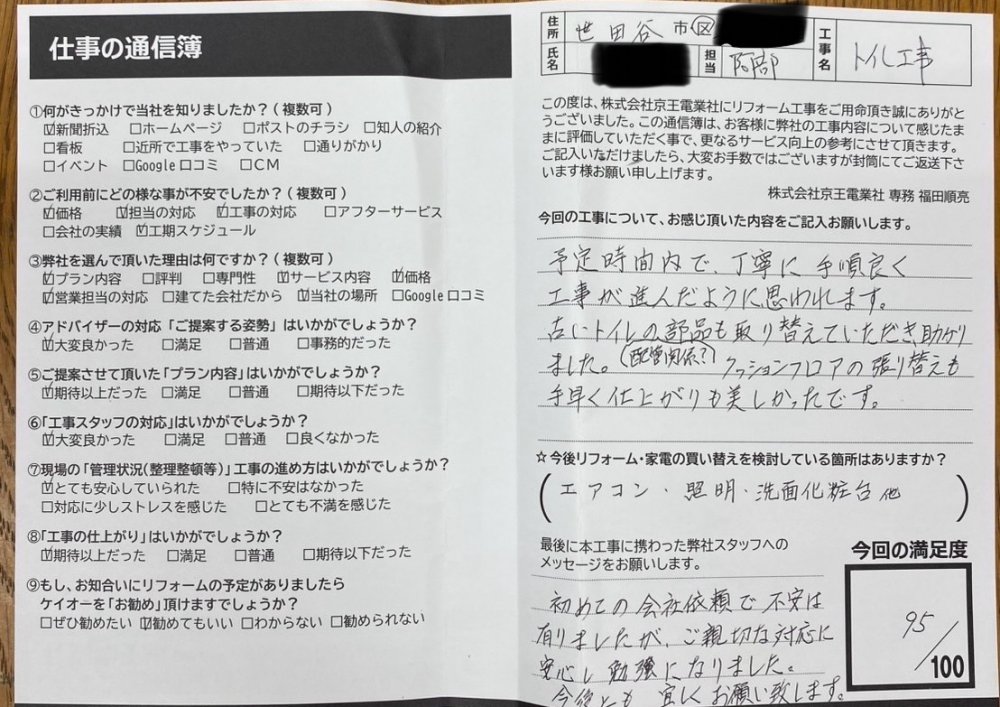 仕事の通信簿
①何がきっかけで当社を知りましたか？(複数可)
☑新聞折込 □ホームページ □ポストのチラシ □知人の紹介
□看板 □近所で工事をやっていた □通りがかり
□イベント □Google口コミ □CM
②ご利用前にどの様な事が不安でしたか？(複数可)
☑価格 ☑担当の対応 ☑工事の対応 □アフターサービス
□会社の実績 ☑工期スケジュール
③弊社を選んで頂いた理由は何ですか？(複数可)
☑プラン内容 □評判 □専門性 ☑サービス内容 ☑価格
☑営業担当の対応 □建てた会社だから ☑当社の場所 □Google口コミ
④アドバイザーの対応「ご提案する姿勢」はいかがでしょうか？
☑大変良かった □満足 □普通 □事務的だった
⑤ご提案させて頂いた「プラン内容」はいかがでしょうか？
☑期待以上だった □満足 □普通 □期待以下だった
⑥「工事スタッフの対応」はいかがでしょうか？
☑大変良かった □満足 □普通 □良くなかった
⑦現場の「管理状況(整理整頓等)」工事の進め方はいかがでしょうか？
☑とても安心していられた □特に不安はなかった
□対応に少しストレスを感じた □とても不満を感じた
⑧「工事の仕上がり」はいかがでしょうか？
☑期待以上だった □満足 □普通 □期待以下だった
⑨もし、お知合いにリフォームの予定がありましたら
ケイオーを「お勧め」頂けますでしょうか？
□ぜひ勧めたい ☑勧めてもいい □わからない □勧められない
住所 世田谷 市・区
氏名 担当 阿部 工事名 トイレ工事
この度は、株式会社京王電業社にリフォーム工事をご用命頂き誠にありがと
うございました。この通信簿は、お客様に弊社の工事内容について感じたま
まに評価していただく事で、更なるサービス向上の参考にさせて頂きます。
ご記入いただけましたら、大変お手数ではございますが封筒にてご返送下さ
います様お願い申し上げます。
株式会社京王電業社 専務 福田順亮
今回の工事について、お感じ頂いた内容をご記入お願いします。
予定時間内で、丁寧に手順良く
工事が進んだように思われます。
古いトイレの部品も取り替えていただき助かり
ました。(配管関係?) クッションフロアの張り替えも
手早く仕上がりも美しかったです。
☆今後リフォーム・家電の買い替えを検討している箇所はありますか？
(エアコン・照明・洗面化粧台他)
最後に本工事に携わった弊社スタッフへの
メッセージをお願いします。
初めての会社依頼で不安は
有りましたが、ご親切な対応に
安心し勉強になりました。
今後とも宜しくお願い致します。
今回の満足度
95/100